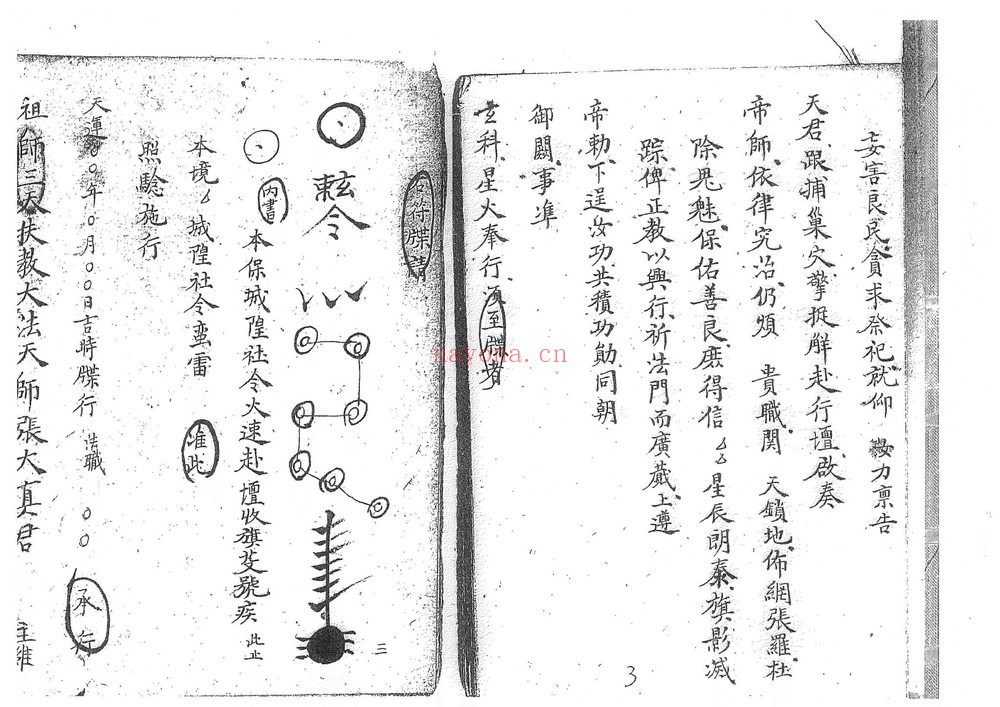 妄害良民貪求祭祀就仰 汝力禀告
天君跟捕巢穴擎捉解赴行壇啟奏
帝師依律究治仍煩 貴職関 天鎖地佈網張羅杜
除鬼魅保佑善良庶得信 厶厶星辰朗泰旗影滅
踪俾正教以興行祈法門而廣蕆上遵
帝勅下逞汝功共積功勛同朝
御闕事准
玄科星火奉行須至牒者
3
右符牒請
敕令
內書 本保城隍社令火速赴壇收旗芟號疾 此止
本境厶城隍社令蛮雷 准此
照驗施行
天運00年0月00日吉時牒行 法職 00 承行
祖師三天扶教大法天師張大真君 主維
三
nayona.cn